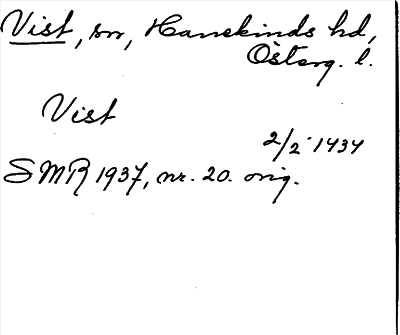 Vist, sn, Hanekinds hd,
Österg. l.
Vist
2/2 1434
SMR 1937, nr. 20. orig.